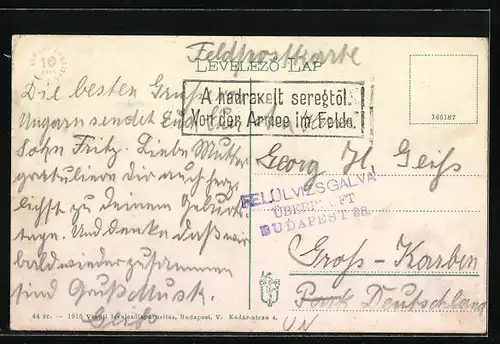 Feldpostkarte
LEVELEZŐ-LAP
A hadrakelt seregtől.
Von der Armee im Felde.
165187
Die besten Grüße
Ungarn sendet Euch
Sohn Fritz. Liebe Mutter
gratuliere Dir auch herz-
lichst zu deinem Geburts-
tage. Und denke daß wir
bald wieder zusammen
sind Gruß
Georg H. Geiß
FELÜLVIZSGÁLVA
ÜBERPRÜFT
BUDAPEST
Groß-Karben
Deutschland
44 sz. — 1915 levelezőlapárusitás, Budapest, V. Kádár-utcza 4.